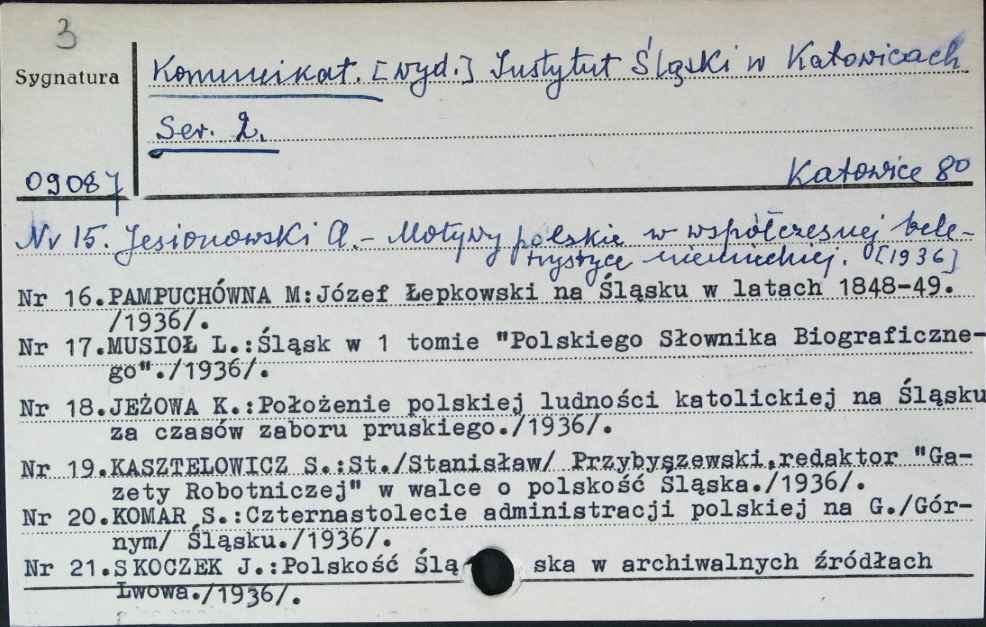 3
Sygnatura
Komunikat. [wyd.] Instytut Śląski w Katowicach
Ser. 2.
09087
Katowice 80
Nr 15. Jesionowski A. - Motywy polskie w współczesnej bele-
trystyce niemieckiej. [1936]
Nr 16. PAMPUCHÓWNA M:Józef Łepkowski na Śląsku w latach 1848-49.
/1936/.
Nr 17. MUSIOŁ L.:Śląsk w 1 tomie "Polskiego Słownika Biograficzne-
go"./1936/.
Nr 18. JEŻOWA K.:Położenie polskiej ludności katolickiej na Śląsku
za czasów zaboru pruskiego./1936/.
Nr 19. KASZTELOWICZ S.:St./Stanisław/ Przybyszewski,redaktor "Ga-
zety Robotniczej" w walce o polskość Śląska./1936/.
Nr 20. KOMAR S.:Czternastolecie administracji polskiej na G./Gór-
nym/ Śląsku./1936/.
Nr 21. SKOCZEK J.:Polskość Ślą ska w archiwalnych źródłach
Lwowa./1936/.